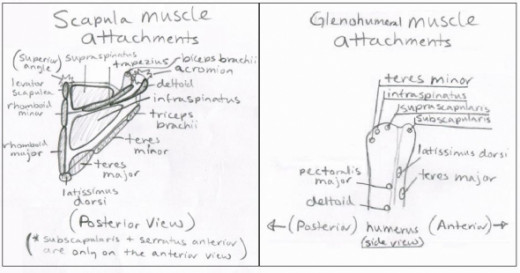 Scapula muscle
attachments
(superior
angle)
supraspinatus
trapezius
biceps brachii
acromion
levator
scapulea
deltoid
rhomboid
minor
infraspinatus
triceps
brachii
rhomboid
major
teres
minor
teres
major
latissimus
dorsi
(Posterior View)
(* subscapularis + serratus anterior
are only on the anterior view)
Glenohumeral muscle
attachments
teres minor
infraspinatus
suprascapularis
subscapularis
latissimus dorsi
pectoralis
major
teres major
deltoid
←(Posterior) humerus (Anterior)→
(side view)